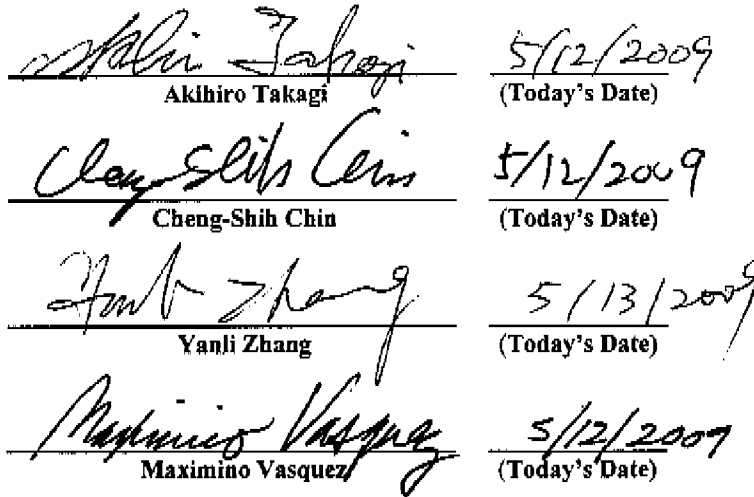 Akihiro Takagi 5/12/2009
Akihiro Takagi (Today's Date)
Cheng-Shih Chin 5/12/2009
Cheng-Shih Chin (Today's Date)
Zhang 5/13/2009
Yanli Zhang (Today's Date)
Maximino Vasquez 5/12/2009
Maximino Vasquez (Today's Date)